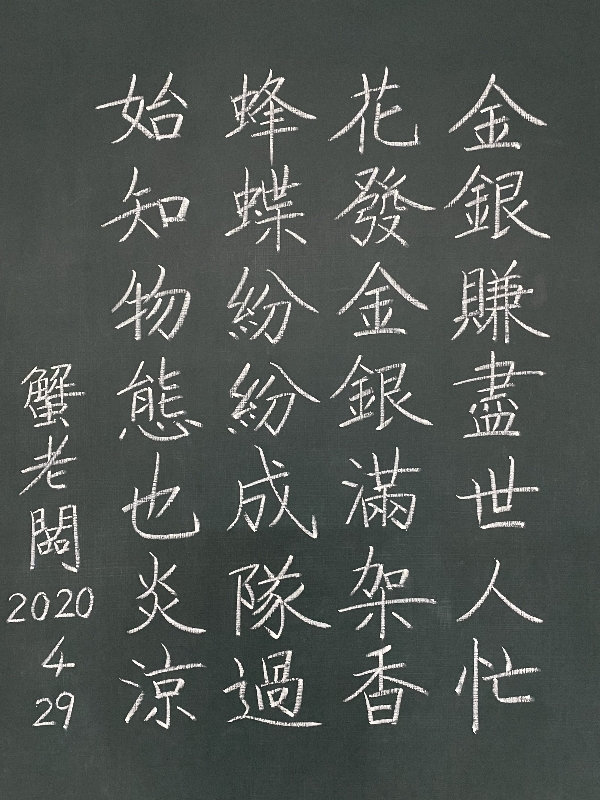 金銀賺盡世人忙
花發金銀滿架香
蜂蝶紛紛成隊過
始知物態也炎涼
蟹老闆
2020
4
29